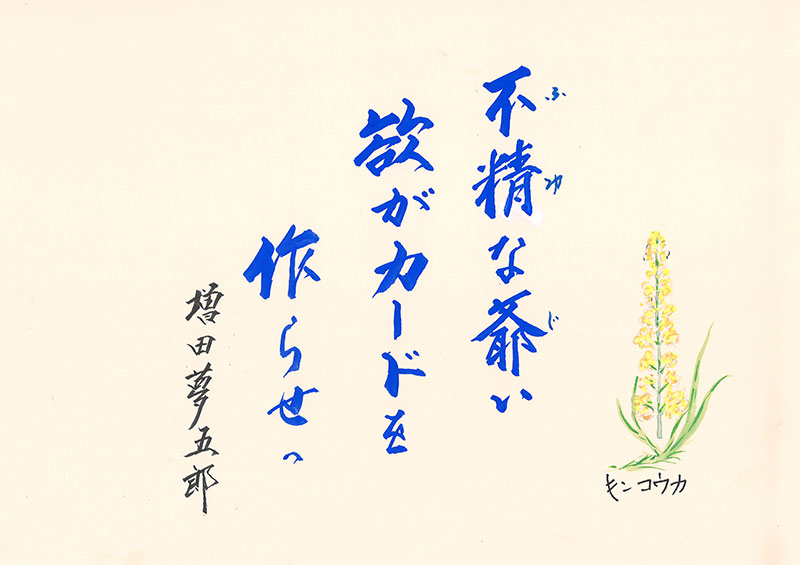 不精な爺い
ふゆ
じ
欲がカードを
作らせっ
増田夢五郎
キンコウカ